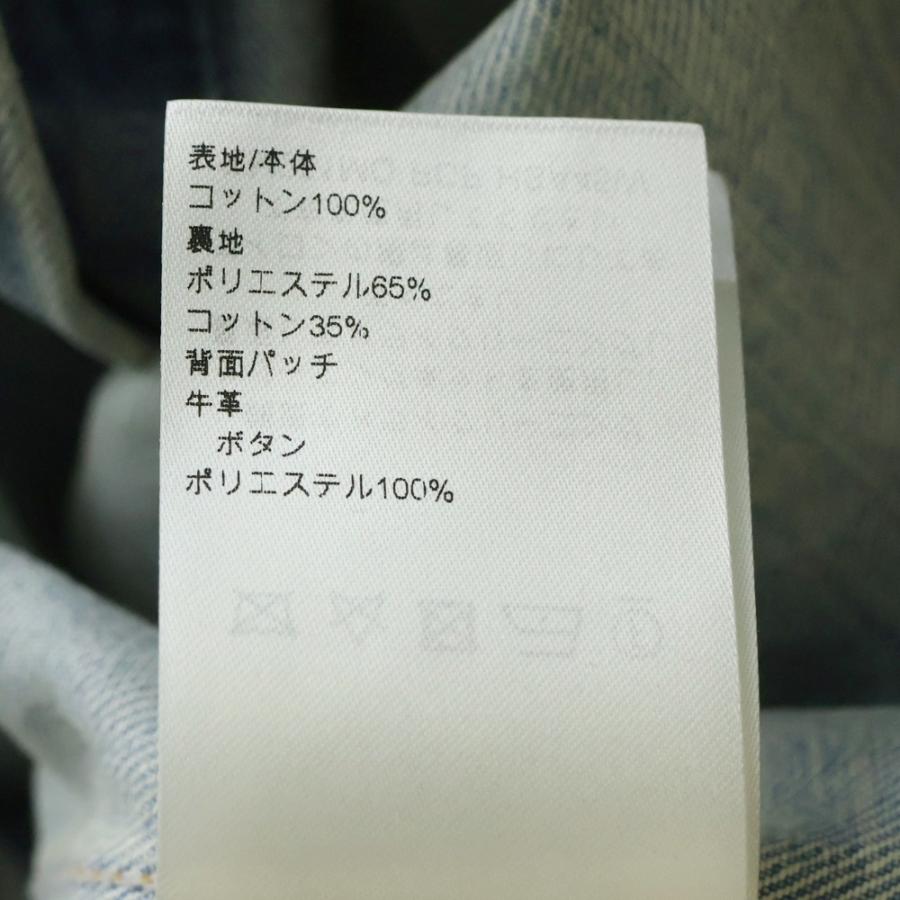 表地/本体
コットン100%
裏地
ポリエステル65%
コットン35%
背面パッチ
牛革
　ボタン
ポリエステル100%